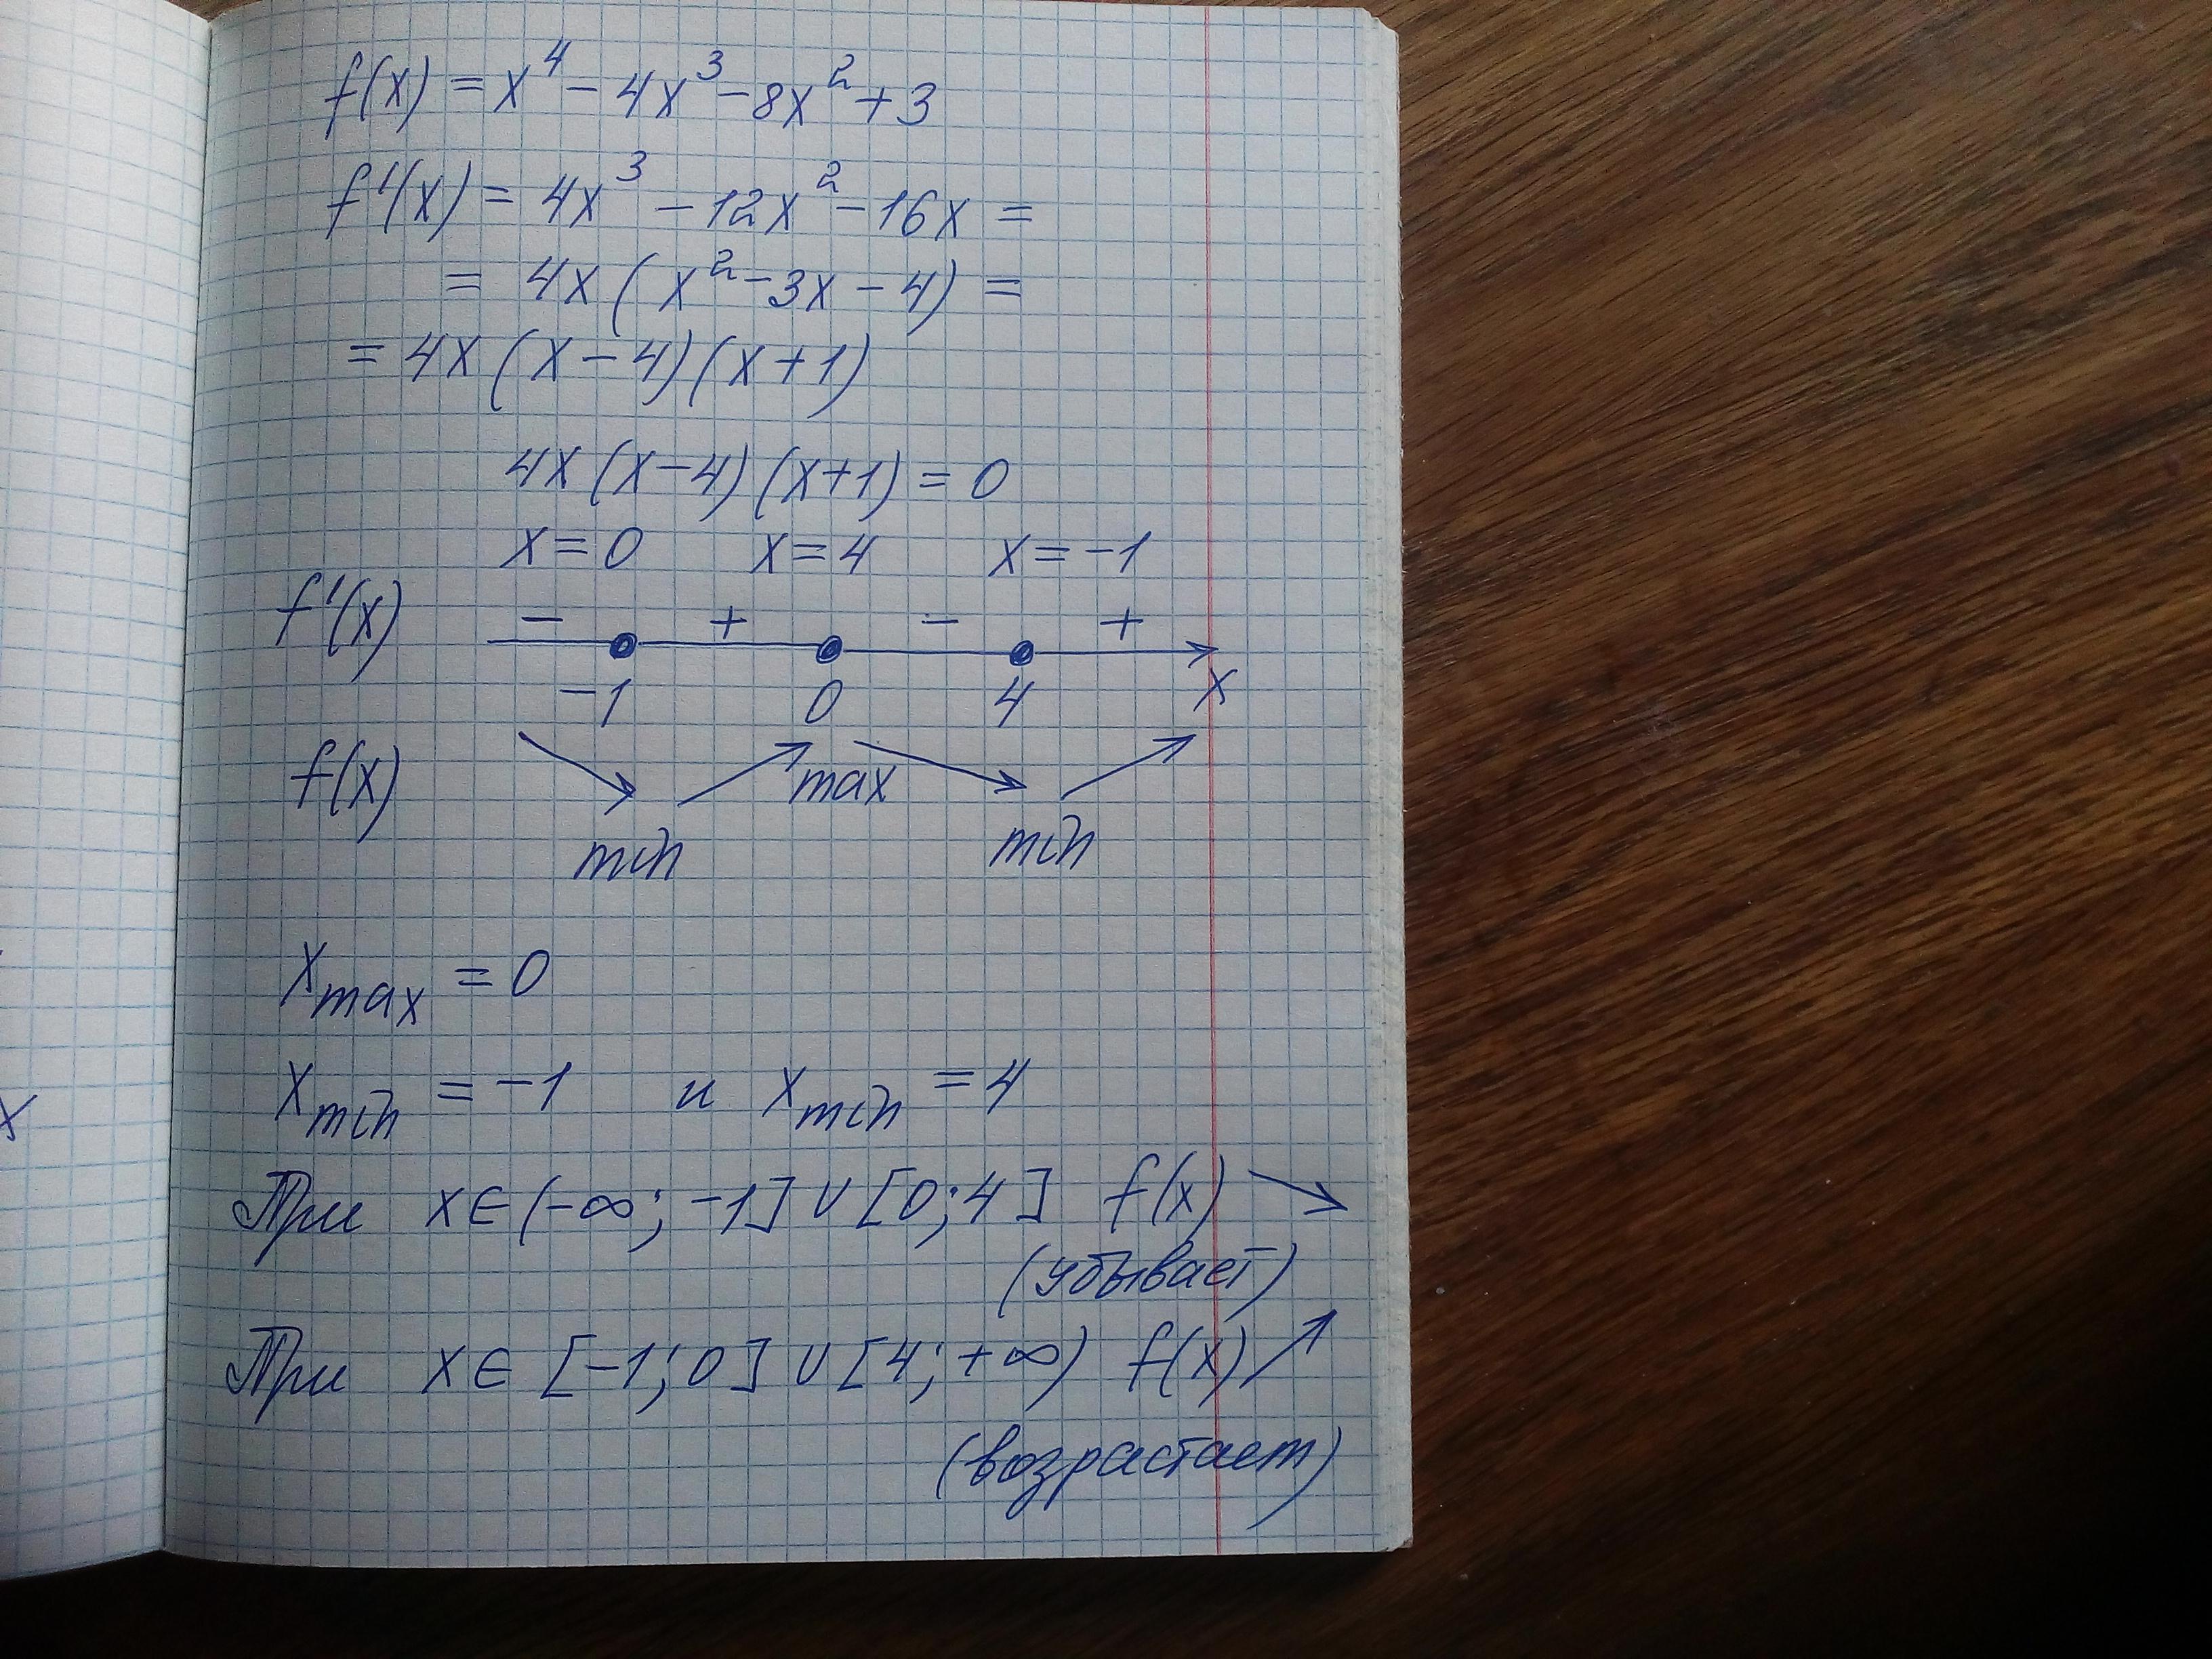 f(x) = x⁴ - 4x³ - 8x² + 3
f'(x) = 4x³ - 12x² - 16x =
= 4x(x² - 3x - 4) =
= 4x(x - 4)(x + 1)
4x(x - 4)(x + 1) = 0
x = 0 x = 4 x = -1
f'(x) - + - +
-1 0 4 x
f(x) max
min min
x
x_max = 0
x_min = -1 и x_min = 4
При x ∈ (-∞; -1] ∪ [0; 4] f(x) ↘
(убывает)
При x ∈ [-1; 0] ∪ [4; +∞) f(x) ↗
(возрастает)